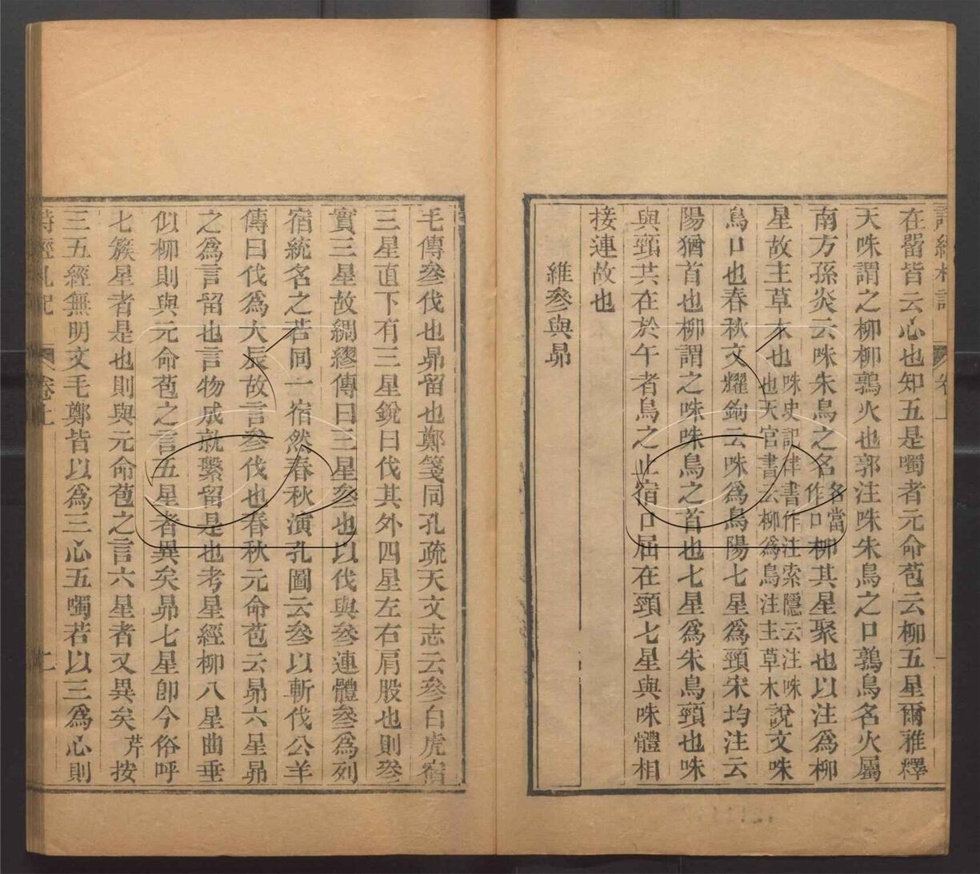 在罶皆云心也知五是噣者元命苞云柳五星爾雅釋
天咮謂之柳柳鶉火也郭注咮朱鳥之口鶉鳥名火屬
南方孫炎云咮朱鳥之名名當作口柳其星聚也以注爲柳
星故主草木也咮史記律書作注索隱云注咮也天官書云柳爲鳥注主草木說文咮
鳥口也春秋文耀鉤云咮爲鳥陽七星爲頸宋均注云
陽猶首也柳謂之咮咮鳥之首也七星爲朱鳥頸也咮
與頸共在於午者鳥之止宿口屈在頸七星與咮體相
接連故也
維參與昴
毛傳參伐也昴留也鄭箋同孔疏天文志云參白虎宿
三星直下有三星銳曰伐其外四星左右肩股也則參
實三星故綢繆傳曰三星參也以伐與參連體參爲列
宿統名之若同一宿然春秋演孔圖云參以斬伐公羊
傳曰伐爲大辰故言參伐也春秋元命苞云昴六星昴
之爲言留也言物成就繫留是也考星經柳八星曲垂
似柳則與元命苞之言五星者異矣昴七星卽今俗呼
七簇星者是也則與元命苞之言六星者又異矣芹按
三五經無明文毛鄭皆以爲三心五噣若以三爲心則
詩經札記 卷上